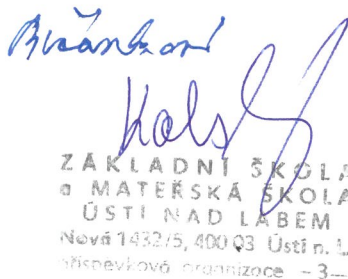 ZÁKLADNÍ ŠKOLA
a MATEŘSKÁ ŠKOLA
ÚSTÍ NAD LABEM
Nová 1432/5, 400 03 Ústí n. L.
příspěvková organizace - 3 -